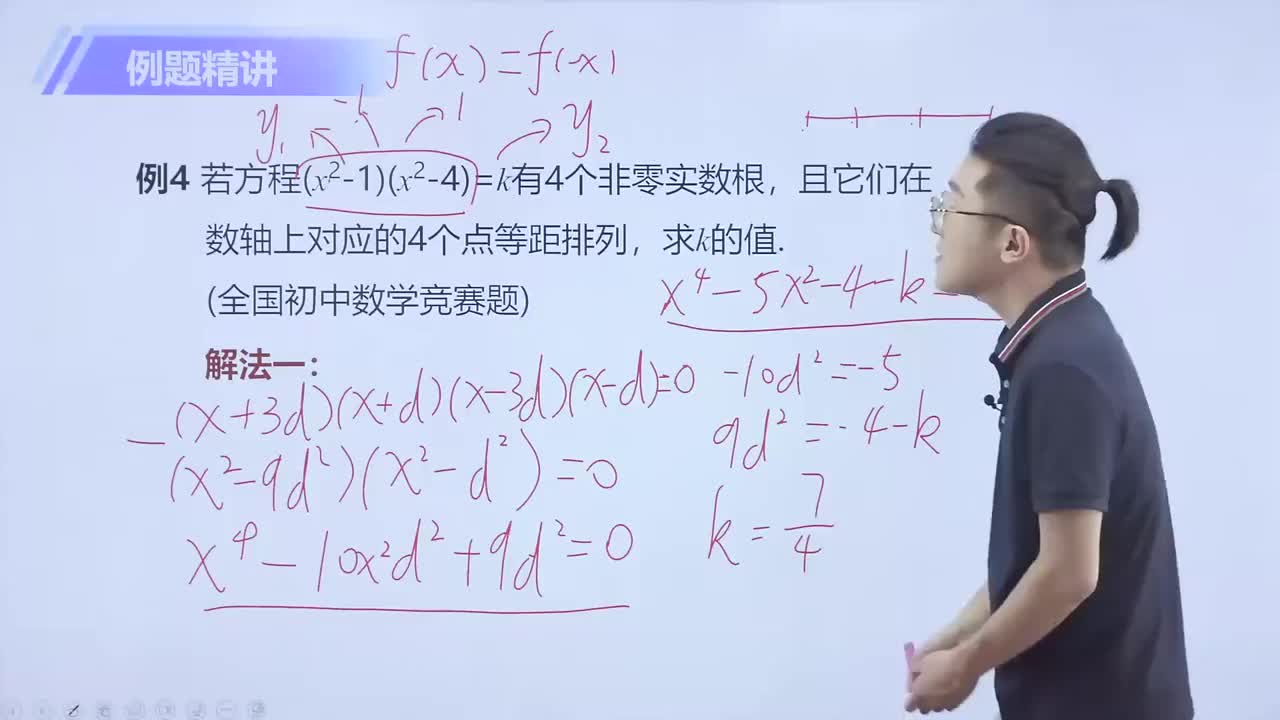 例题精讲
f(x)=f(-x)
y₁ -1 1 y₂
例4 若方程(x²-1)(x²-4)=k有4个非零实数根，且它们在
数轴上对应的4个点等距排列，求k的值.
(全国初中数学竞赛题)
x⁴-5x²-4-k=
解法一：
(x+3d)(x+d)(x-3d)(x-d)=0
(x²-9d²)(x²-d²)=0
x⁴-10x²d²+9d²=0
-10d²=-5
9d²=-4-k
k=7/4